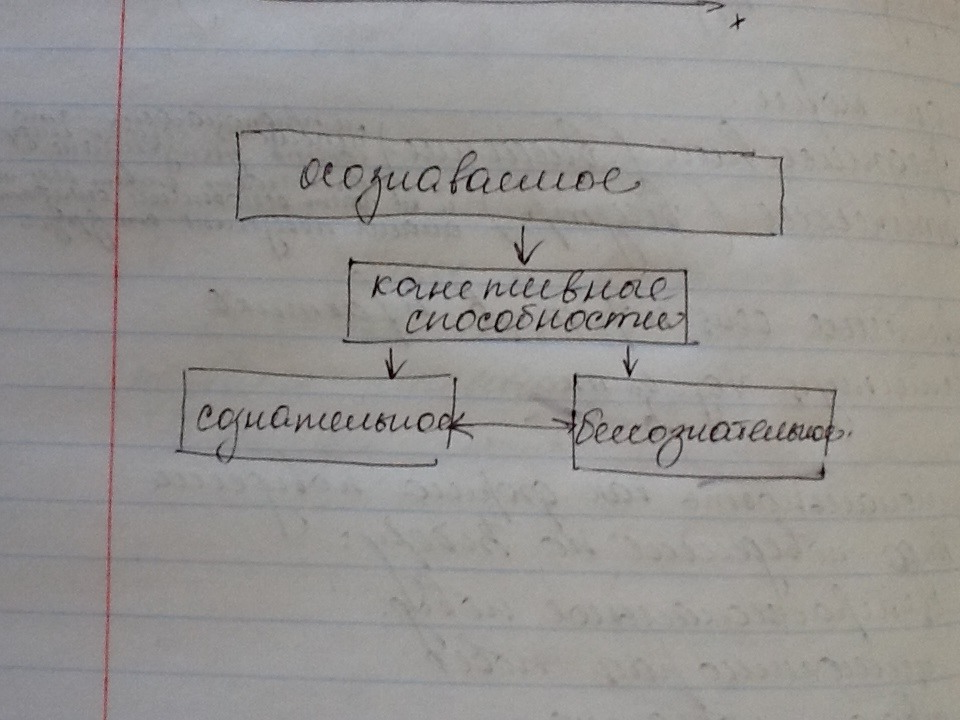 x
осознаваемое
канетивные
способности
сознательное
бессознательное.